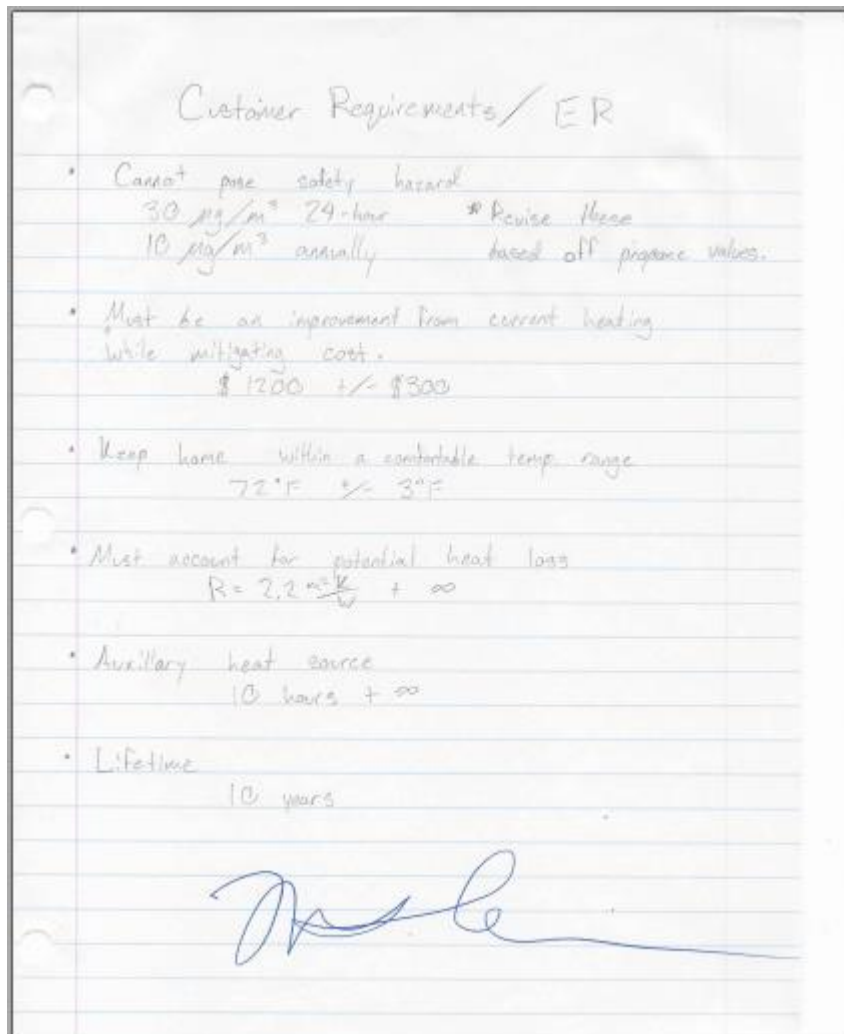 Customer Requirements/ER
• Cannot pose safety hazard
30 µg/m³ 24-hour * Revise these
10 µg/m³ annually based off propane values.
• Must be an improvement from current heating
while mitigating cost.
$1200 +/- $300
• Keep home within a comfortable temp. range
72°F +/- 3°F
• Must account for potential heat loss
R = 2.2 m²K/W + ∞
• Auxillary heat source
10 hours + ∞
• Lifetime
10 years